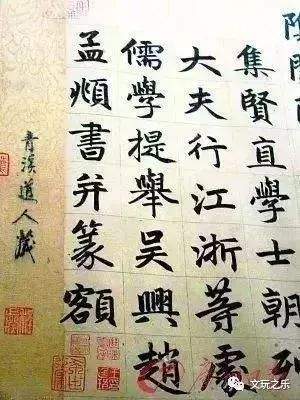 集賢直學士朝列
大夫行江浙等處
儒學提舉吳興趙
孟頫書并篆額
青溪道人藏
文玩之乐